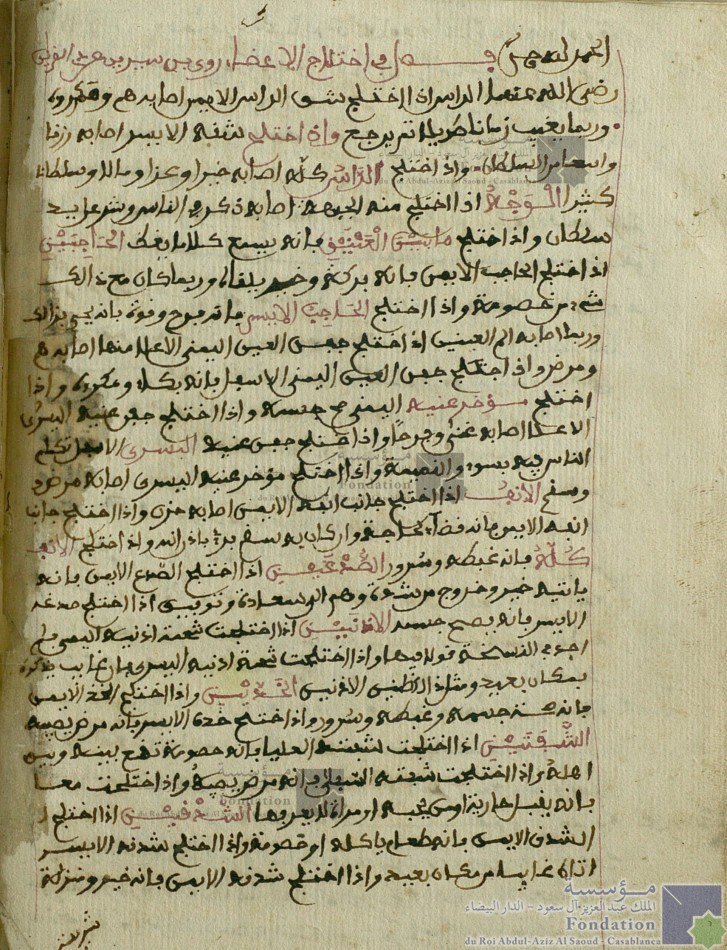 الحمد لله فصل في اختلاج الاعضا روي عن
رضي الله عنهما الراس اذا اختلج شق الراس الايمن اصابه هم
وربما يغيب زمانا طويلا ثم يرجع واذ اختلج شقه الايسر اصابه رزقا
واسعا من السلطان واذ اختلج الراس كله اصابه خيرا وعزا ومالا وسلطانا
كثيرا الوجه اذا اختلج منه الجبهة اصابه ذكر في الناس
سلطان واذ اختلج ما بين العينين فانه يسمع كلاما الحاجبين
اذ اختلج الحاجب الايمن فانه بركة وخير يلقاه وربما كان مع ذالك
شيء من خصومة واذا اختلج الحاجب الايسر فانه فرح وقوة
وربما اصابه الم العينين اذ اختلج جفن العين اليمنى الاعلا منها اصابه هم
ومرض واذ اختلج جفن العين اليمنى الاسفل فانه بكاء واذا
اختلج مؤخر عنيه اليمنى واذا اختلج جفن عنيه اليسرى
الاعلا اصابه غنى وفرحا واذ اختلج جفن عنيه اليسرى الاسفل تكلم
الناس فيه بسوء والنميمة واذا اختلج مؤخر عنيه اليسرى اصابه مرض
وسقم الانف اذا اختلج جانب انفه الايمن اصابه حزن واذا اختلج جانب
انفه الايسر فانه قضاء حاجة وان كان به سقم برئ باذن الله واذ اختلج الانف
كله فانه غبطه وسرور الصدغين اذا اختلج الصدغ الايمن فانه
ياتيه خير وخروج من شدة وهم الى سعادة اذا اختلج صدغه
الايسر فانه يصح جسده الاذنين اذا اختلجت شحمة اذنيه اليمنى فلم
اجد في النسخة قولا فيها واذا اختلجت شحمة اذنيه اليسرى فان غايب يذكره
بمكان بعيد الاذنين الخدين واذا اختلج الخد الايمن
فانه صحة جسمه وغبطه وسرور واذ اختلج خده الايسر فانه مرض يصيبه
الشفتين اذا اختلجت شفته العليا فانه خصومة تقع بينه وبين
اهله واذ اختلجت شفته السفلى فانه مرض يصيبه واذ اختلجت معا
فانه يقبل او امراة لا يعرفها الشدقين اذا اختلج
الشدق الايمن فانه طعام ياكله او خصومة واذا اختلج شدقه الايسر
اتاه غايبا من مكان بعيد واذا اختلج شدقه الايمن فانه خير ومنزلة
مؤسسة
الملك عبد العزيز آل سعود - الدار البيضاء
Fondation
du Roi Abdul-Aziz Al Saoud - Casablanca